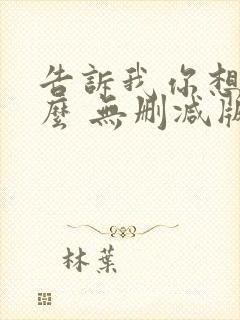 告訴我 你想
麼 無删减版
林葉